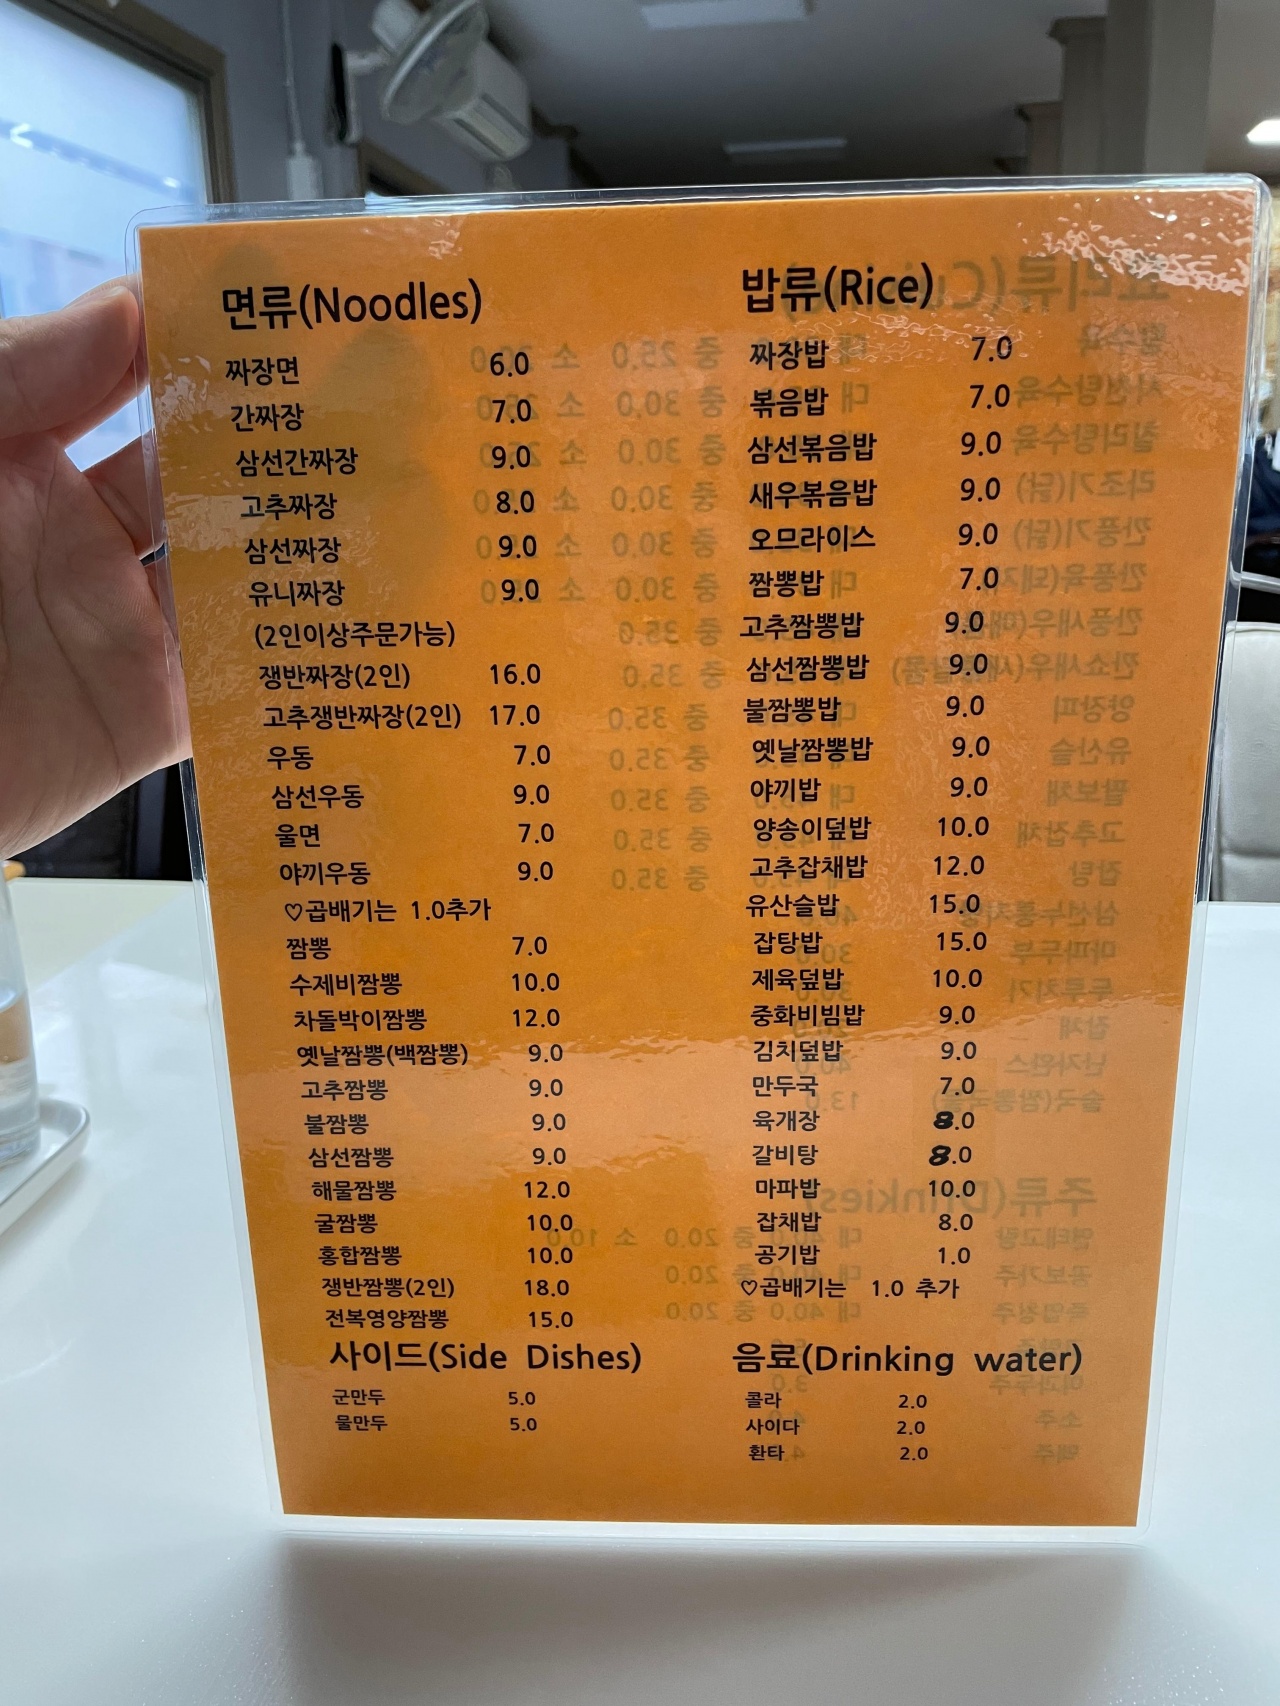 면류(Noodles)
짜장면 6.0
간짜장 7.0
삼선간짜장 9.0
고추짜장 8.0
삼선짜장 9.0
유니짜장 9.0
(2인이상주문가능)
쟁반짜장(2인) 16.0
고추쟁반짜장(2인) 17.0
우동 7.0
삼선우동 9.0
울면 7.0
야끼우동 9.0
♡곱배기는 1.0추가
짬뽕 7.0
수제비짬뽕 10.0
차돌박이짬뽕 12.0
옛날짬뽕(백짬뽕) 9.0
고추짬뽕 9.0
불짬뽕 9.0
삼선짬뽕 9.0
해물짬뽕 12.0
굴짬뽕 10.0
홍합짬뽕 10.0
쟁반짬뽕(2인) 18.0
전복영양짬뽕 15.0
사이드(Side Dishes)
군만두 5.0
물만두 5.0
밥류(Rice)
짜장밥 7.0
볶음밥 7.0
삼선볶음밥 9.0
새우볶음밥 9.0
오므라이스 9.0
짬뽕밥 7.0
고추짬뽕밥 9.0
삼선짬뽕밥 9.0
불짬뽕밥 9.0
옛날짬뽕밥 9.0
야끼밥 9.0
양송이덮밥 10.0
고추잡채밥 12.0
유산슬밥 15.0
잡탕밥 15.0
제육덮밥 10.0
중화비빔밥 9.0
김치덮밥 9.0
만두국 7.0
육개장 8.0
갈비탕 8.0
마파밥 10.0
잡채밥 8.0
공기밥 1.0
♡곱배기는 1.0 추가
음료(Drinking water)
콜라 2.0
사이다 2.0
환타 2.0